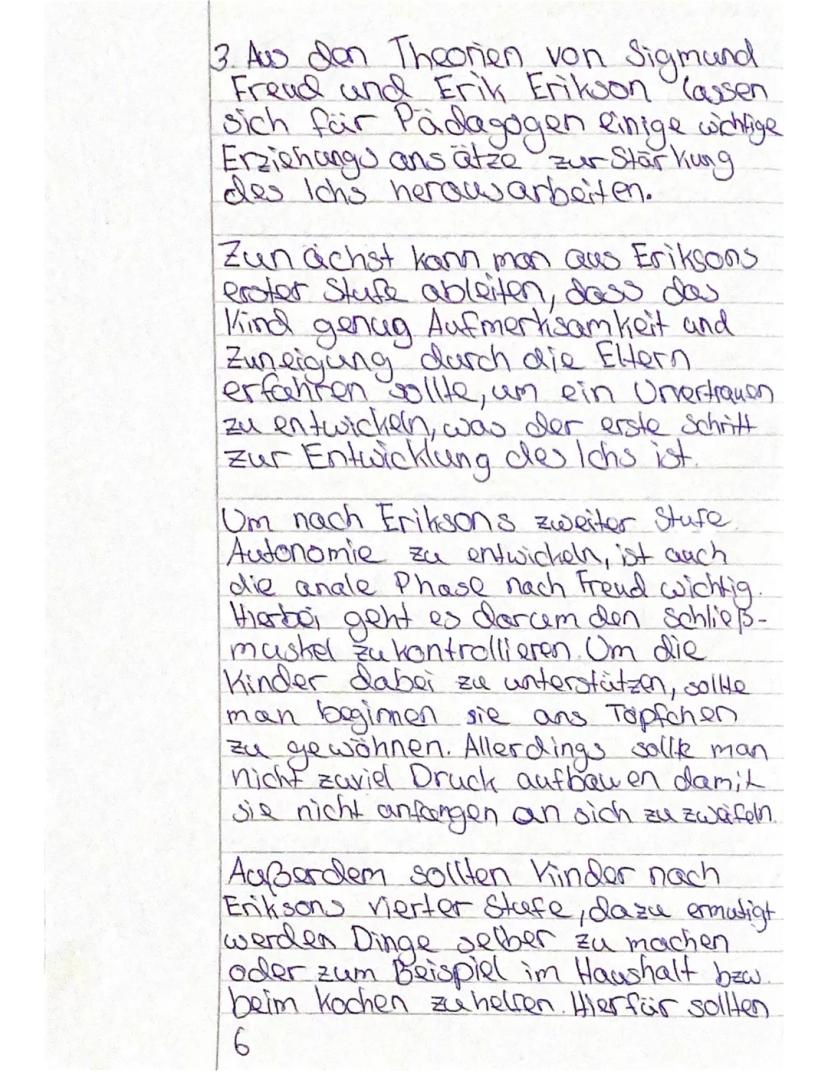 3. Aus den Theorien von Sigmund
Freud und Erik Erikson lassen
sich für Pädagogen einige wichtige
Erziehungsansätze zur Stärkung
des Ichs herausarbeiten.
Zunächst kann man aus Eriksons
erster Stufe ableiten, dass das
Kind genug Aufmerksamkeit und
Zuneigung durch die Eltern
erfahren sollte, um ein Urvertrauen
zu entwickeln, was der erste Schritt
zur Entwicklung des Ichs ist.
Um nach Eriksons zweiter Stufe
Autonomie zu entwickeln, ist auch
die anale Phase nach Freud wichtig.
Hierbei geht es darum den Schließ-
muskel zu kontrollieren. Um die
Kinder dabei zu unterstützen, sollte
man beginnen sie ans Töpfchen
zu gewöhnen. Allerdings sollte man
nicht zuviel Druck aufbauen damit
sie nicht anfangen an sich zu zweifeln.
Außerdem sollten Kinder nach
Eriksons vierter Stufe, dazu ermutigt
werden Dinge selber zu machen
oder zum Beispiel im Haushalt bzw.
beim Kochen zu helfen. Hierfür sollten
6